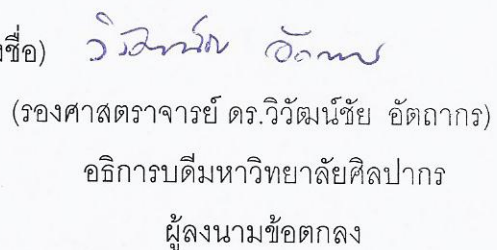 งชื่อ) วิวัฒน์ชัย อัตถากร
(รองศาสตราจารย์ ดร.วิวัฒน์ชัย อัตถากร)
อธิการบดีมหาวิทยาลัยศิลปากร
ผู้ลงนามข้อตกลง